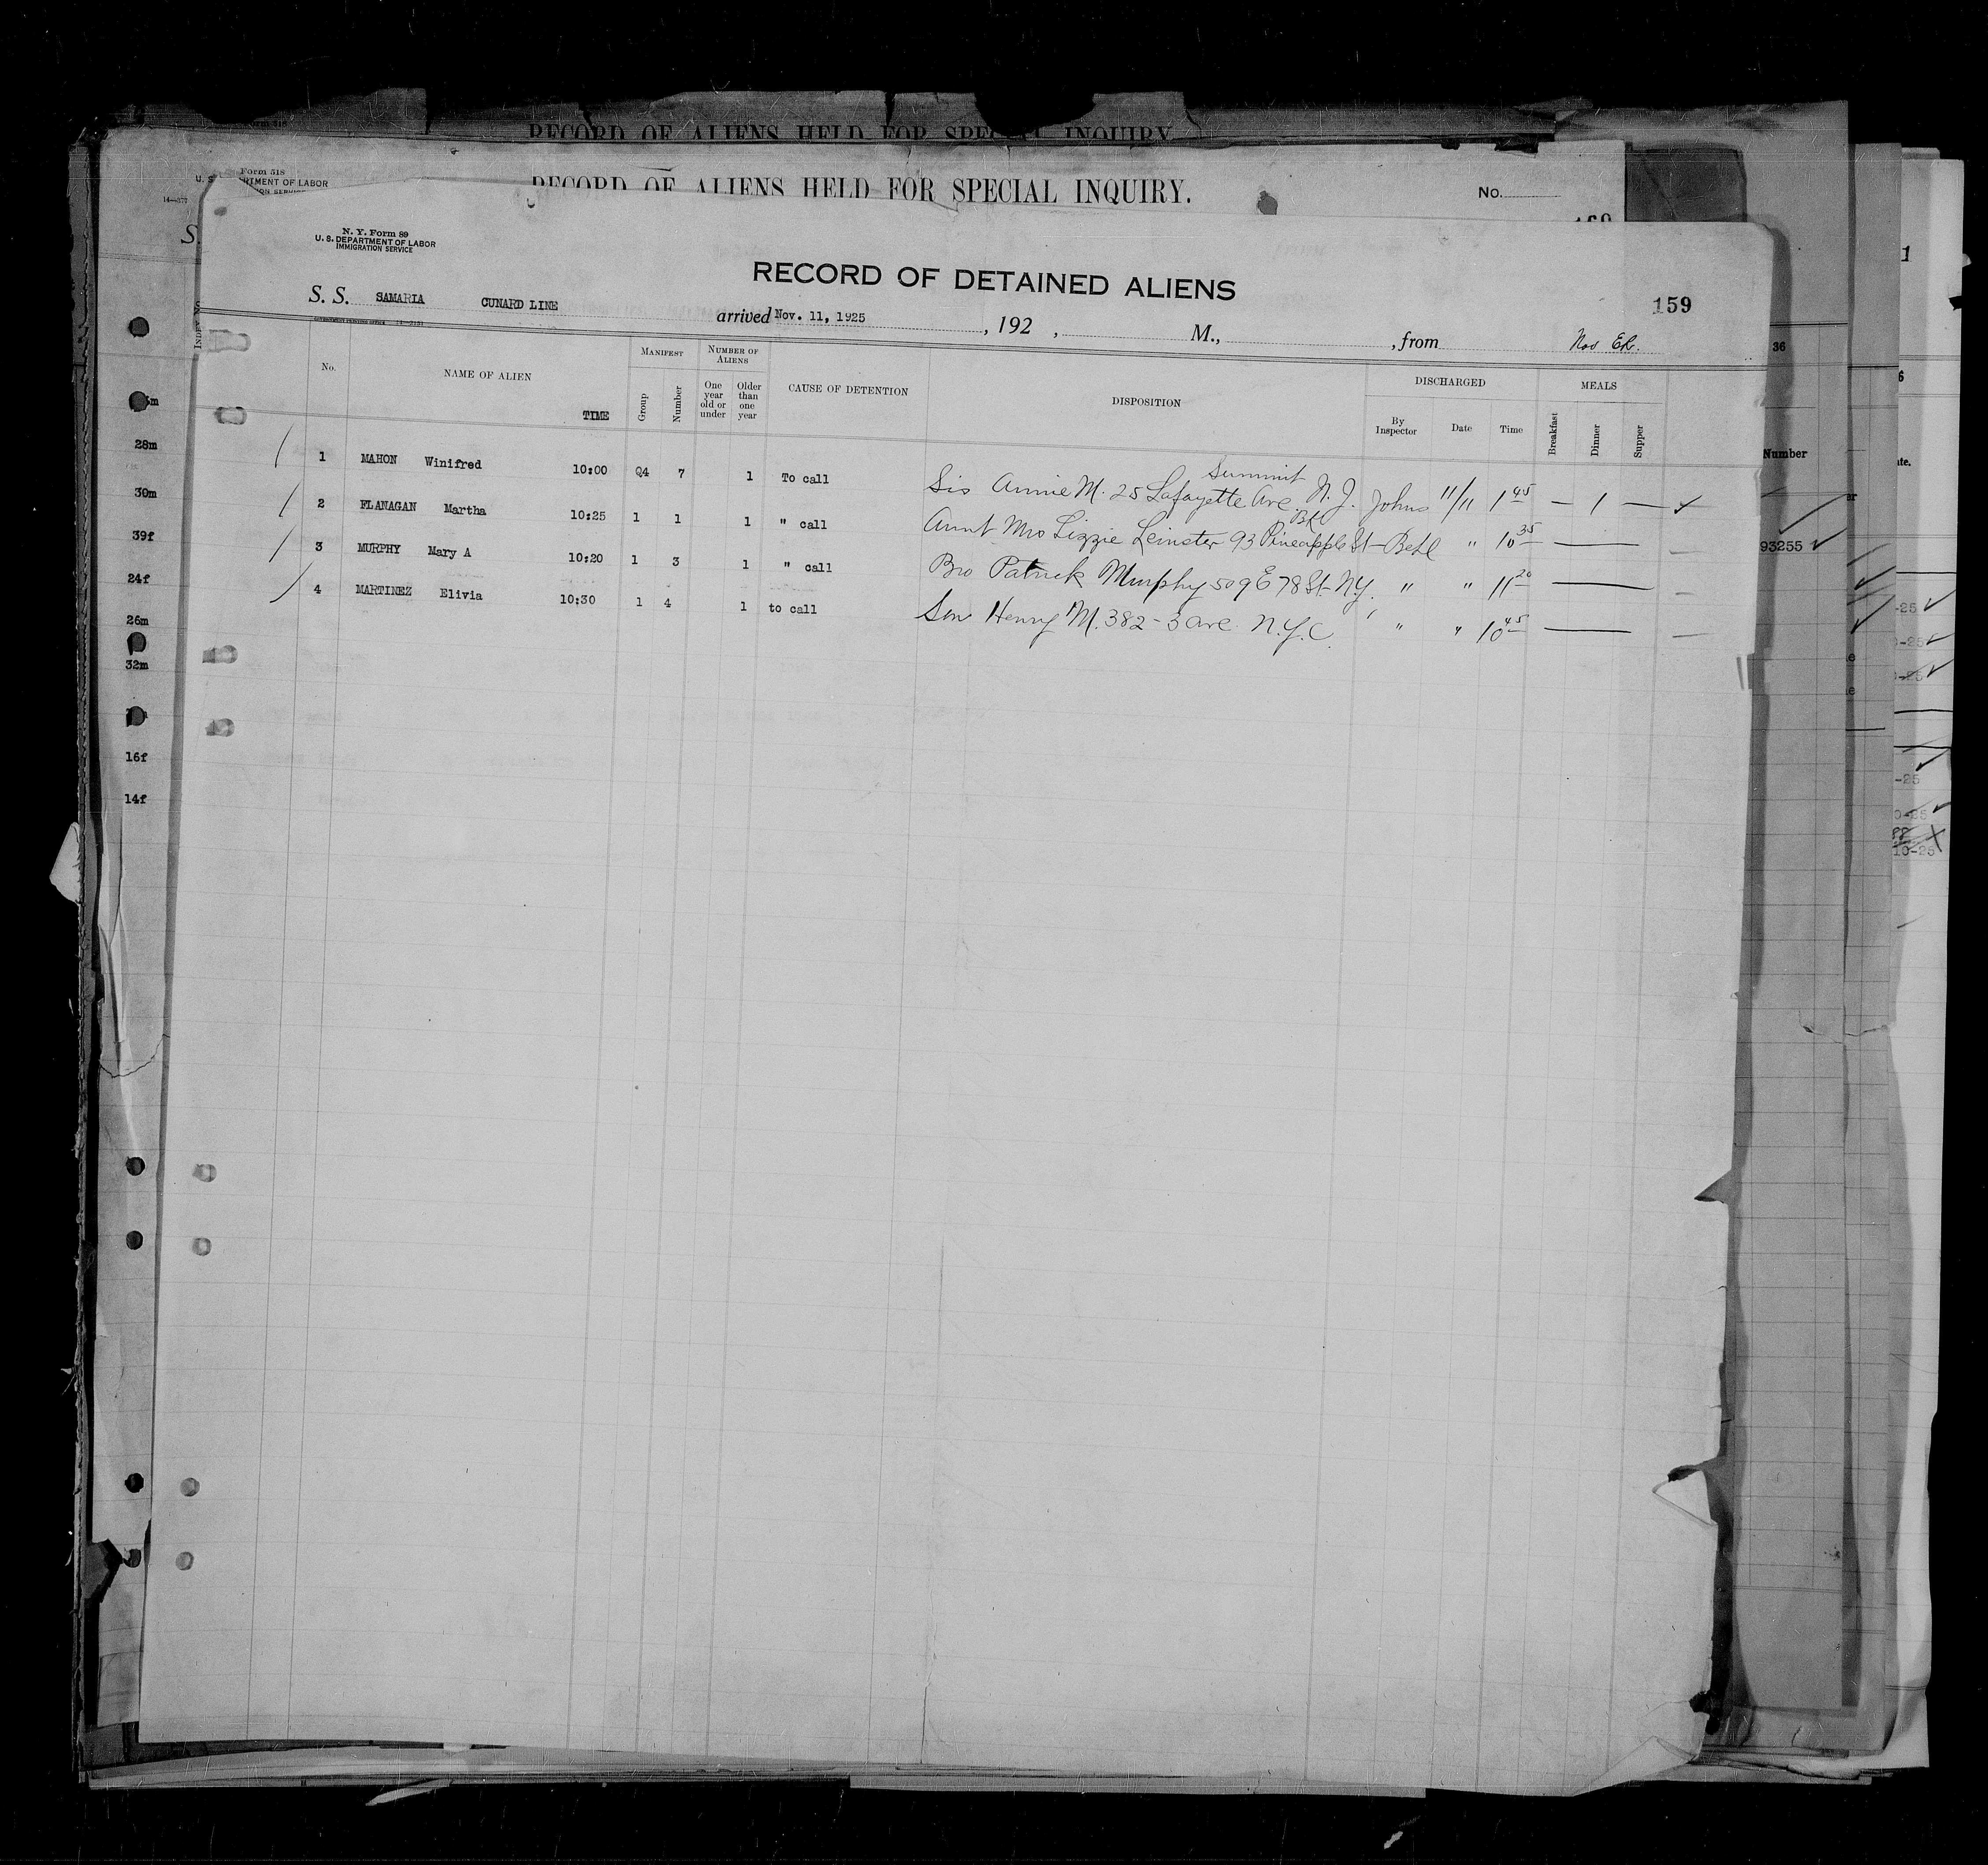 RECORD OF ALIENS HELD FOR SPECIAL INQUIRY
Form 518
RECORD OF ALIENS HELD FOR SPECIAL INQUIRY. No.
N. Y. Form 89
U. S. DEPARTMENT OF LABOR
IMMIGRATION SERVICE
RECORD OF DETAINED ALIENS
159
S. S. SAMARIA CUNARD LINE arrived Nov. 11, 1925, 192 , M., , from
No. NAME OF ALIEN TIME MANIFEST Group Number NUMBER OF ALIENS One year old or under Older than one year CAUSE OF DETENTION DISPOSITION DISCHARGED By Inspector Date Time MEALS Breakfast Dinner Supper
1 MAHON Winifred 10:00 Q4 7 1 To call Sis Annie M. 25 Lafayette Ave. Summit N.J. Johns 11/11 1 45 — 1 —
2 FLANAGAN Martha 10:25 1 1 1 " call Aunt Mrs Lizzie Leinster 93 Pineapple St Bk " 10 35 —
3 MURPHY Mary A 10:20 1 3 1 " call Bro Patrick Murphy 509 E 78 St N.Y. " " 11 20 —
4 MARTINEZ Elivia 10:30 1 4 1 to call Son Henry M. 382-3 Ave N.Y.C. " " 10 45 —
28m
30m
39f
24f
26m
32m
16f
14f
36
Number
93255